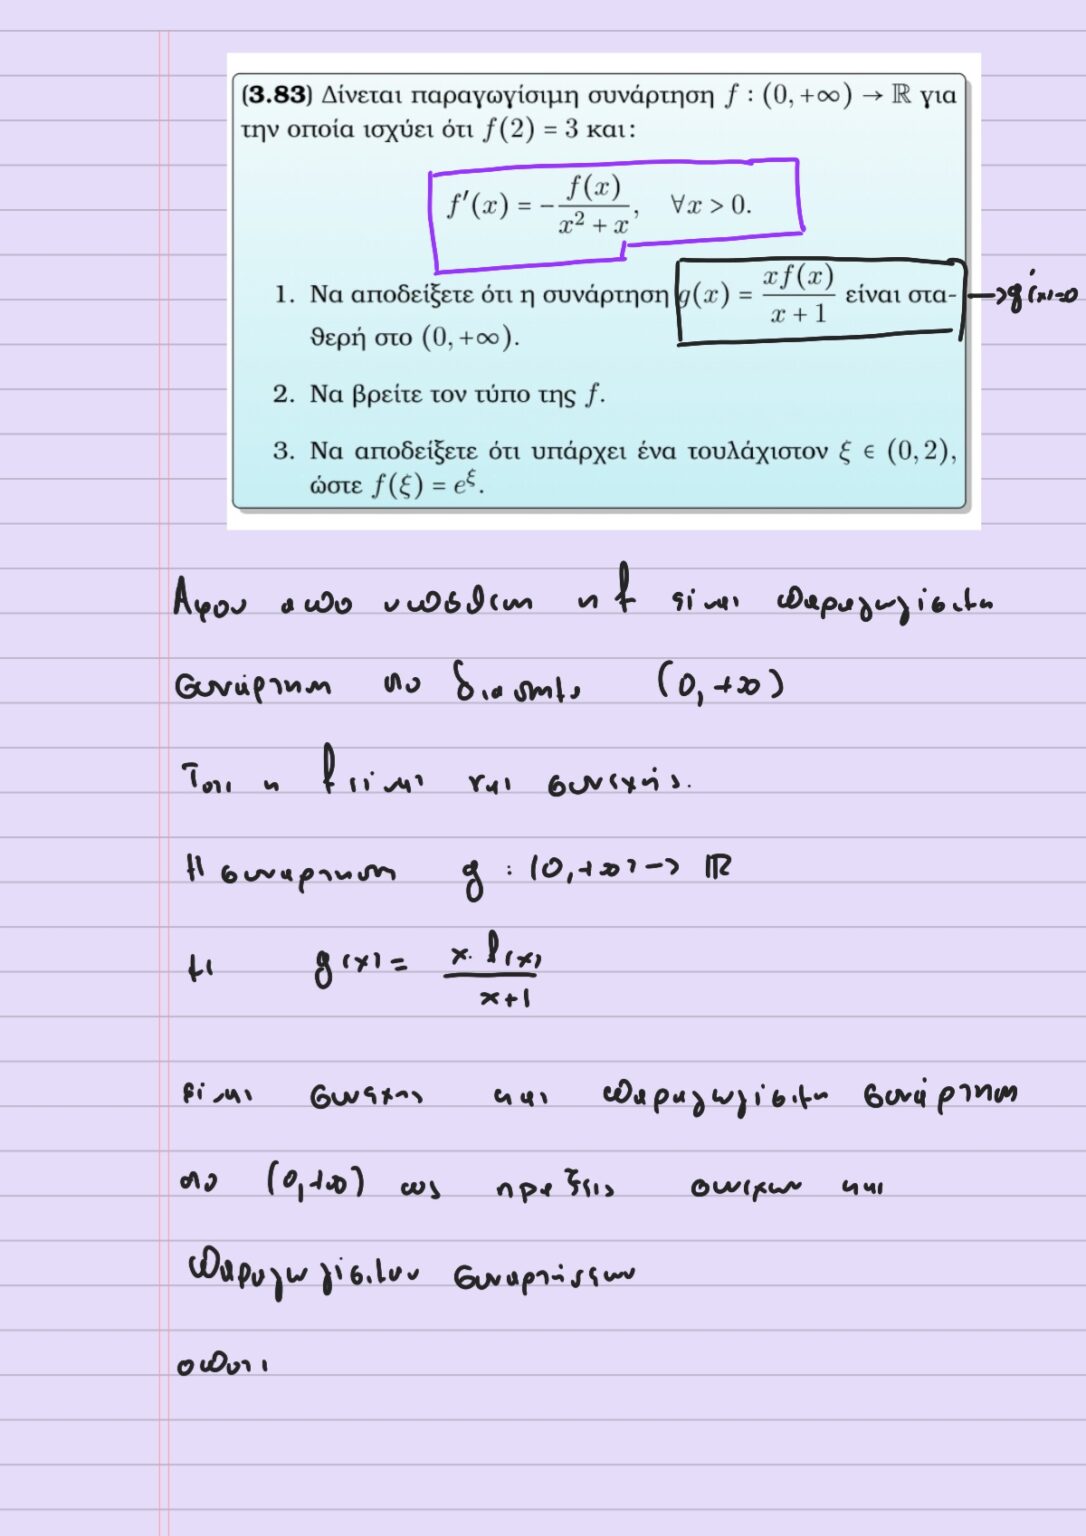 (3.83) Δίνεται παραγωγίσιμη συνάρτηση f : (0, +∞) → ℝ για
την οποία ισχύει ότι f(2) = 3 και:
f′(x) = −f(x)/(x² + x), ∀x > 0.
1. Να αποδείξετε ότι η συνάρτηση g(x) = xf(x)/(x + 1) είναι στα-
θερή στο (0, +∞).
→ g′(x)=0
2. Να βρείτε τον τύπο της f.
3. Να αποδείξετε ότι υπάρχει ένα τουλάχιστον ξ ∈ (0, 2),
ώστε f(ξ) = e^ξ.
Αφου απο υποθεση η f είναι παραγωγίσιμη
συνάρτηση στο διαστημα (0, +∞)
Τοτε η f είναι και συνεχής.
Η συναρτηση g : (0, +∞) → ℝ
με g(x) = x·f(x)/(x+1)
είναι συνεχης και παραγωγίσιμη συνάρτηση
στο (0, +∞) ως πραξεις συνεχων και
παραγωγίσιμων συναρτήσεων
οποτε